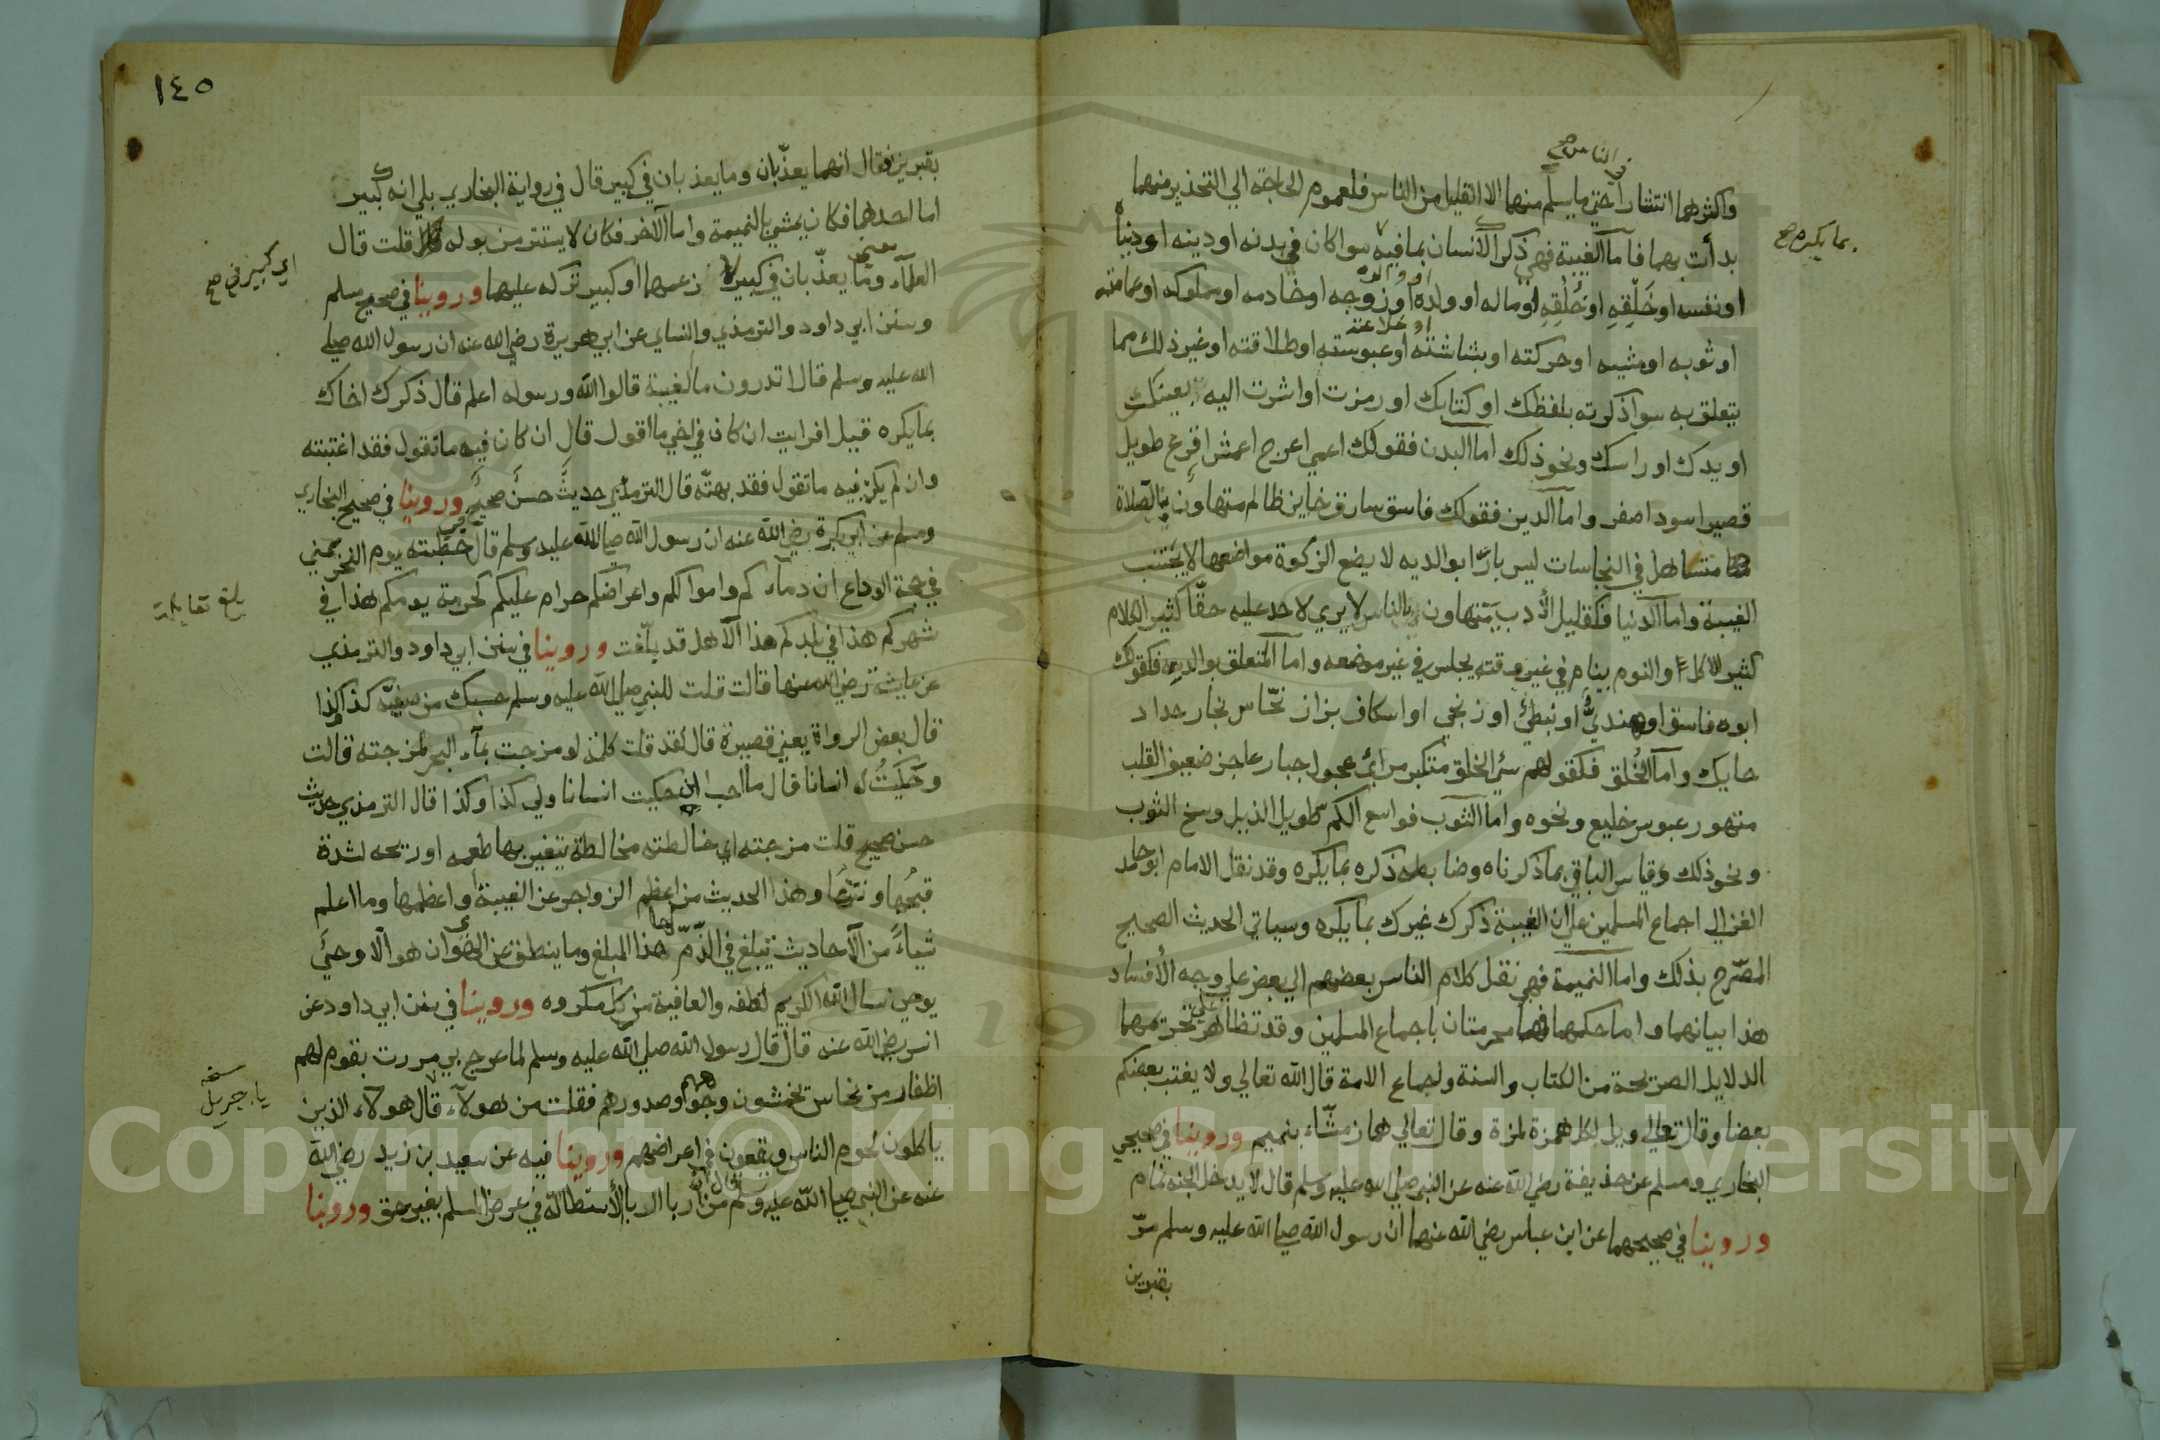 في الناس صح
واكثرهما انتشارا حتي ما يسلم منهما الا القليل من الناس فلعموم الحاجة الي التحذير منهما
بدأت بهما فاما الغيبة فهي ذكرك الانسان بما فيه سوا كان في بدنه او دينه او دنياه
بما يكره صح
او نفسه او خَلْقِهِ او خُلُقِهِ او ماله او ولده او والده او زوجه او خادمه او مملوكه او عمامته
او ثوبه او مشيه او حركته او بشاشته او خلاعته او عبوسته او طلاقته او غير ذلك مما
يتعلق به سوا ذكرته بلفظك او كتابك او رمزت او اشرت اليه بعينك
او يدك او راسك ونحو ذلك اما البدن فقولك اعمي اعرج اعمش اقرع طويل
قصير اسود اصفر واما الدين فقولك فاسق سارق خاين ظالم متهاون بالصلاة
متساهل في النجاسات ليس بارا بوالديه لا يضع الزكوة مواضعها لا يجتنب
الغيبة واما الدنيا فكقليل الأدب يتهاون بالناس لا يري لاحد عليه حقّا كثير الكلام
كثير الاكل او النوم ينام في غير وقته يجلس في غير موضعه واما المتعلق بوالديه فكقولك
ابوه فاسق او هنديٌّ او نبطيٌّ او زنجي او اسكاف بزاز نخّاس نجار حداد
حايك واما الخُلق فكقولهم سيّ الخلق متكبر مرائٍ عجول جبار عاجز ضعيف القلب
متهور عبوس خليع ونحوه واما الثوب فواسع الكم طويل الذيل وسخ الثوب
ونحو ذلك وقياس الباقي بما ذكرناه وضابطه ذكره بما يكره وقد نقل الامام ابو حامد
الغزالي اجماع المسلمين علي ان الغيبة ذكرك غيرك بما يكره وسياتي الحديث الصحيح
المصّرح بذلك واما النميمة فهي نقل كلام الناس بعضهم الي بعض علي وجه الأفساد
هذا بيانهما واما حكمهما فهما محرمتان باجماع المسلمين وقد تظاهر علي تحريمهما
الدلايل الصريحة من الكتاب والسنة واجماع الامة قال الله تعالي ولا يغتب بعضكم
بعضا وقال تعالي ويل لكل همزة لمزة وقال تعالي هماز مشّاء بنميم وروينا في صحيحي
البخاري ومسلم عن حذيفة رضي الله عنه عن النبي صلي الله عليه وسلم قال لا يدخل الجنة نمام
وروينا في صحيحيهما عن ابن عباس رضي الله عنهما ان رسول الله صلي الله عليه وسلم مرّ
بقبرين
١٤٥
بقبرين فقال انهما يعذّبان وما يعذبان في كبير قال في رواية البخاري بلي انه كبير
اما احدهما فكان يمشي بالنميمة واما الآخر فكان لا يستتر من بوله قلت قال
العلماء معني وما يعذّبان في كبير زعمهما او كبير تركه عليهما وروينا في صحيح مسلم
اي كبير في صح
وسنن ابي داود والترمذي والنساي عن ابي هريرة رضي الله عنه ان رسول الله صلي
الله عليه وسلم قال اتدرون ما الغيبة قالوا الله ورسوله اعلم قال ذكرك اخاك
بما يكره قيل افرايت ان كان في اخي ما اقول قال ان كان فيه ما تقول فقد اغتبته
وان لم يكن فيه ما تقول فقد بهتّه قال الترمذي حديثٌ حسنٌ صحيحٌ وروينا في صحيح البخاري
ومسلم عن ابي بكرة رضي الله عنه ان رسول الله صلي الله عليه وسلم قال في خطبته يوم النحر بمني
في حجة الوداع ان دماءكم واموالكم واعراضكم حرام عليكم كحرمة يومكم هذا في
بلغ مقابلة
شهركم هذا في بلدكم هذا الا هل قد بلّغت وروينا في سنن ابي داود والترمذي
عن عايشة رضي الله عنها قالت قلت للنبي صلي الله عليه وسلم حسبك من صفيّة كذا وكذا
قال بعض الرواة يعني قصيرة قال لقد قلت كلمة لو مزجت بماء البحر لمزجته قالت
وحكيتُ له انسانا فقال ما احب اني حكيت انسانا ولي كذا وكذا قال الترمذي حديث
حسن صحيح قلت مزجته اي خالطته مخالطة يتغير بها طعمه او ريحه لشدة
قبحها ونتنها وهذا الحديث من اعظم الزواجر عن الغيبة او اعظمها وما اعلم
شياءً من الاحاديث يبلغ في الذّمّ لها هذا المبلغ وما ينطق عن الهوي ان هو الّا وحيٌ
يوحي نسال الله الكريم لطفه والعافية من كل مكروه وروينا في سنن ابي داود عن
انس رضي الله عنه قال قال رسول الله صلي الله عليه وسلم لما عرج بي مررت بقوم لهم
اظفار من نحاس يخمشون وجوههم وصدورهم فقلت من هولاء قال هولاء الذين
نسخه
يا جبريل
ياكلون لحوم الناس ويقعون في اعراضهم وروينا فيه عن سعيد بن زيد رضي الله
عنه عن النبي صلي الله عليه وسلم قال ان من اربا الربا الأستطالة في عرض المسلم بغير حق وروينا
Copyright © King Saud University